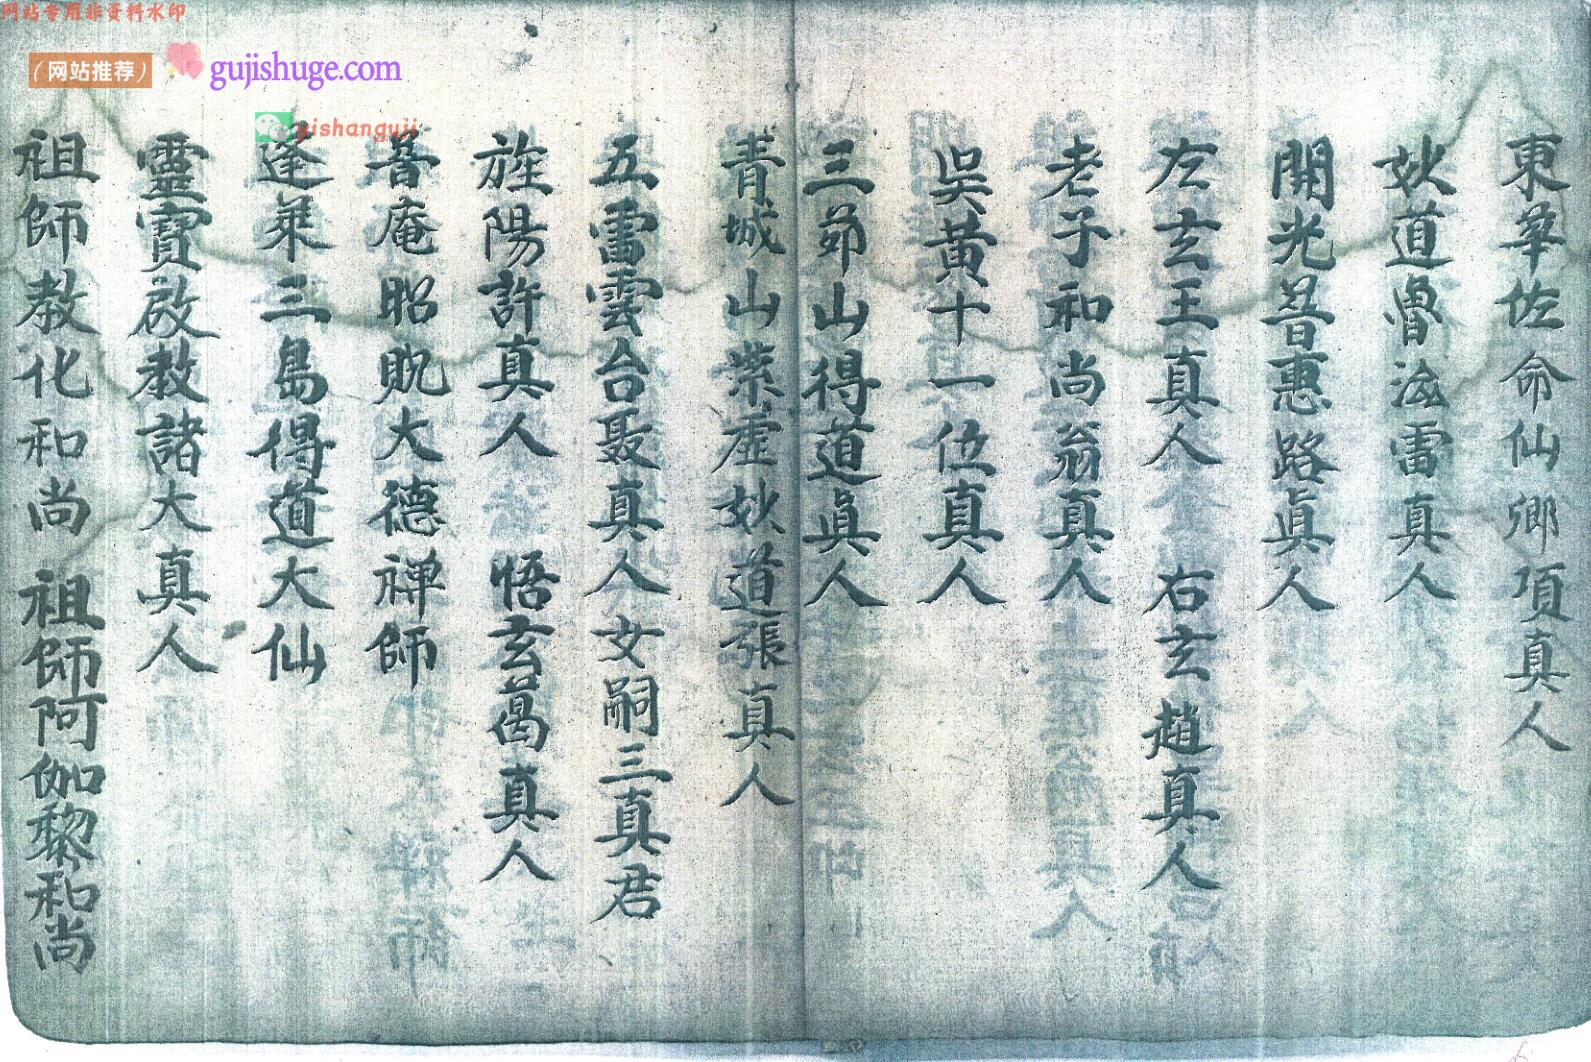 网站专用非资料水印
（网站推荐）
gujishuge.com
yishanguji
東華佐命仙卿項真人
妙道魯海雷真人
開光普惠路真人
左玄王真人 右玄趙真人
老子和尚翁真人
吳黃十一位真人
三茆山得道真人
青城山紫虛妙道張真人
五雷雲台聂真人女嗣三真君
旌陽許真人 悟玄葛真人
普庵昭貺大德禅師
逢萊三島得道大仙
靈寶啟教諸大真人
祖師教化和尚 祖師阿伽黎和尚